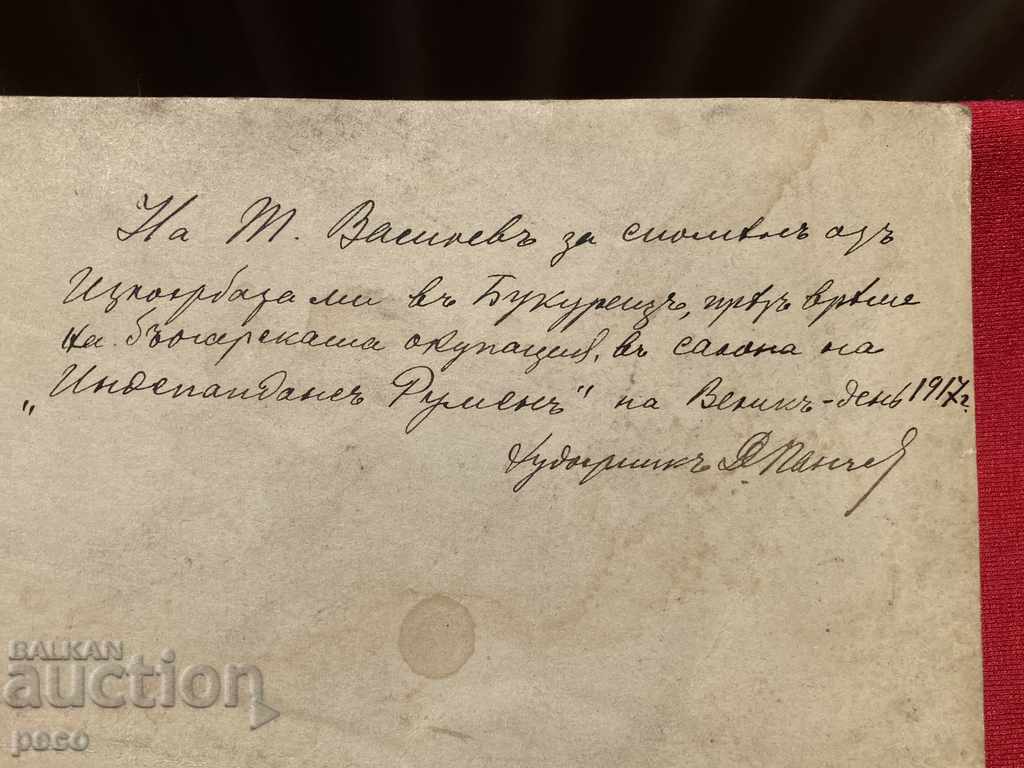 На Т. Василевъ за споменъ отъ
Изложбата ми въ Букурещъ, прѣзъ врѣме
на българската окупация, въ салона на
„Индепандансъ Руменъ" на Великъ-день 1917 г.
Художникъ Д Панчев
BALKAN
auction
peco